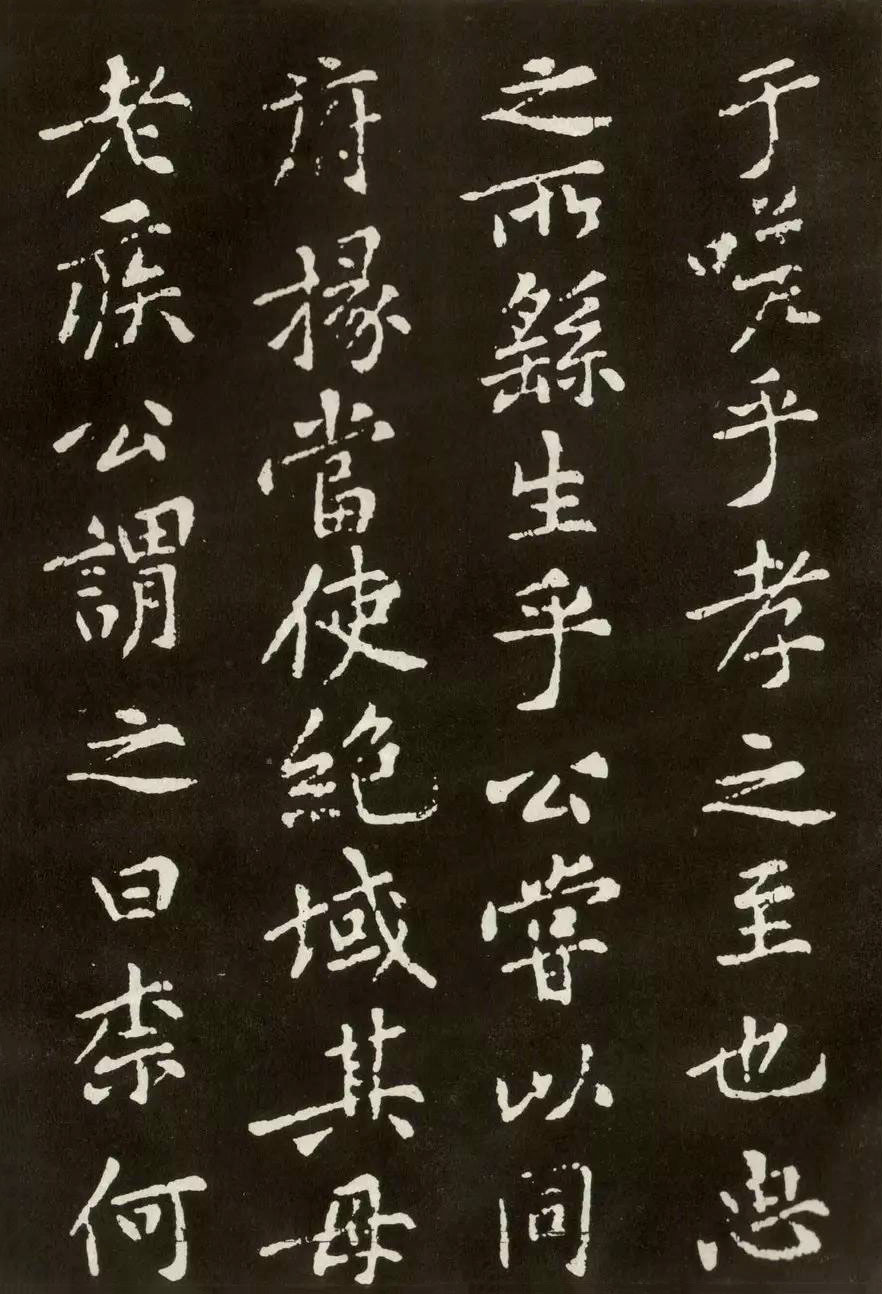 于嗟乎孝之至也忠
之所繇生乎公嘗以同
府掾當使絕域其母
老疾公謂之曰柰何